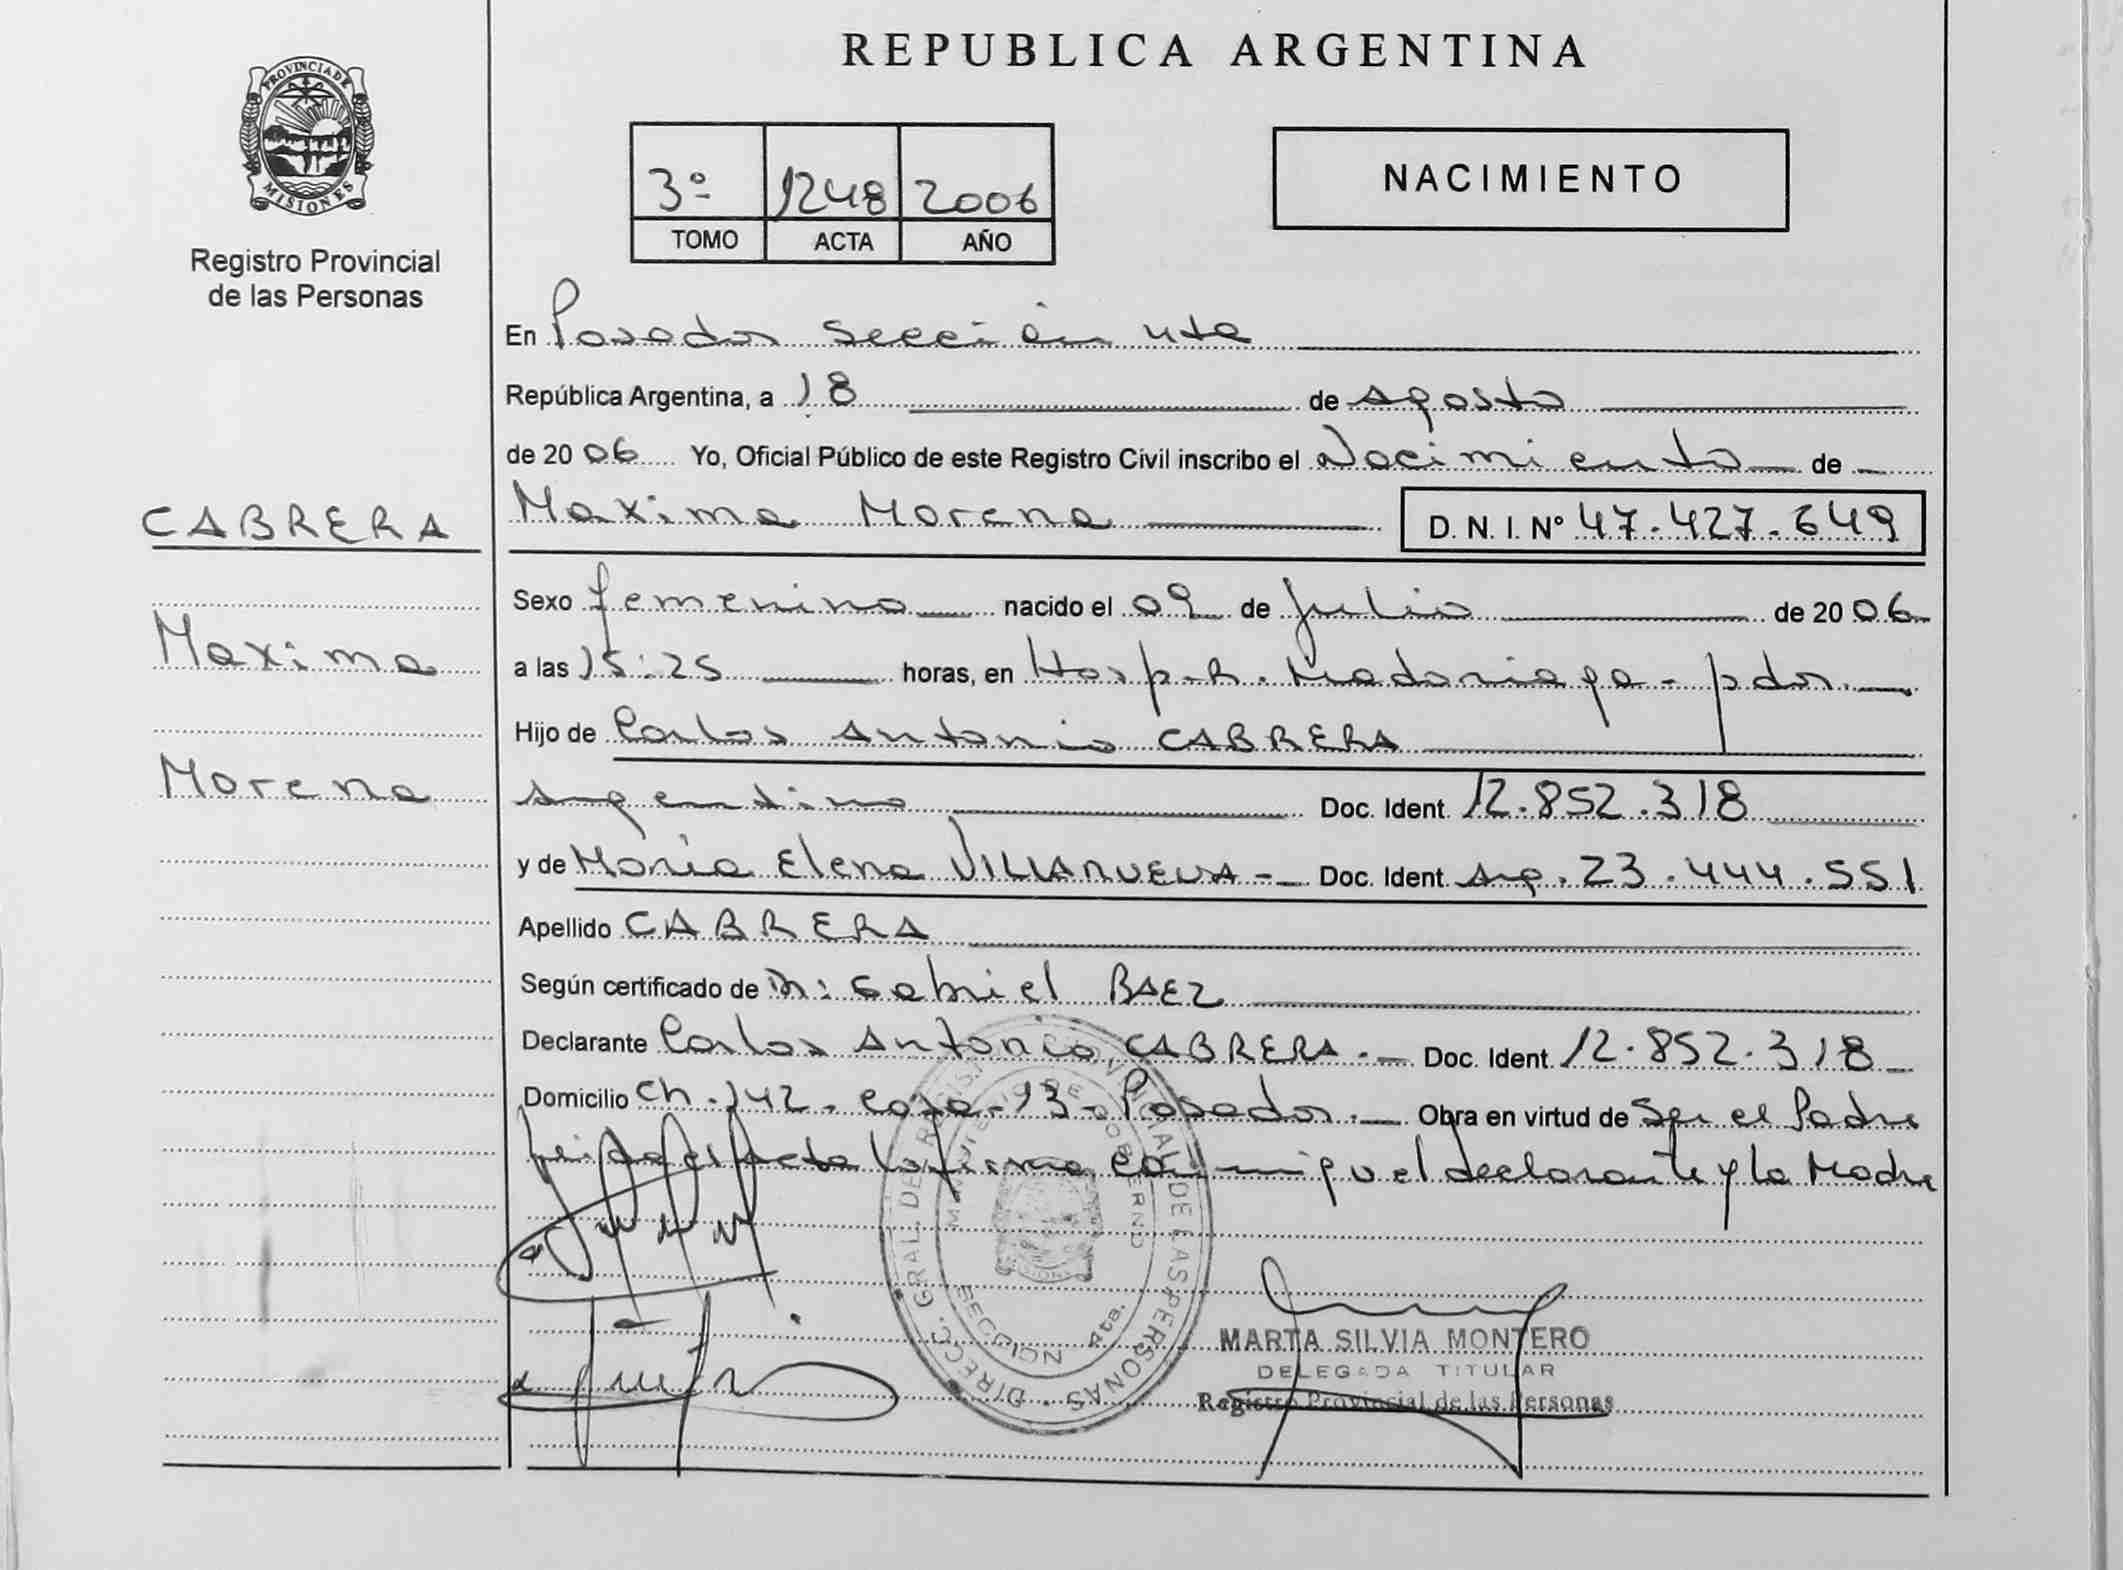 REPUBLICA ARGENTINA
PROVINCIA DE MISIONES
Registro Provincial
de las Personas
3º 1248 2006
TOMO ACTA AÑO
NACIMIENTO
En Posadas Sección 4ta
República Argentina, a 18 de Agosto
de 20 06 Yo, Oficial Público de este Registro Civil inscribo el Nacimiento de
CABRERA
Maxima Morena D. N. I. Nº 47.427.649
Sexo femenino nacido el 09 de Julio de 20 06
Maxima
a las 15:25 horas, en Hosp. R. Madariaga - pdas.
Hijo de Carlos Antonio CABRERA
Morena
Argentino Doc. Ident. 12.852.318
y de María Elena VILLANUEVA - Doc. Ident. Arg. 23.444.551
Apellido CABRERA
Según certificado de Dr: Gabriel BAEZ
Declarante Carlos Antonio CABRERA. Doc. Ident. 12.852.318
Domicilio Ch. 142. Casa-13-Posadas. Obra en virtud de Ser el Padre
leida el acta la firma conmigo el declarante y la Madre
DIRECC. GRAL. DEL REGISTRO PROVINCIAL DE LAS PERSONAS
MINISTERIO DE GOBIERNO
SECCION 4ta.
MARTA SILVIA MONTERO
DELEGADA TITULAR
Registro Provincial de las Personas